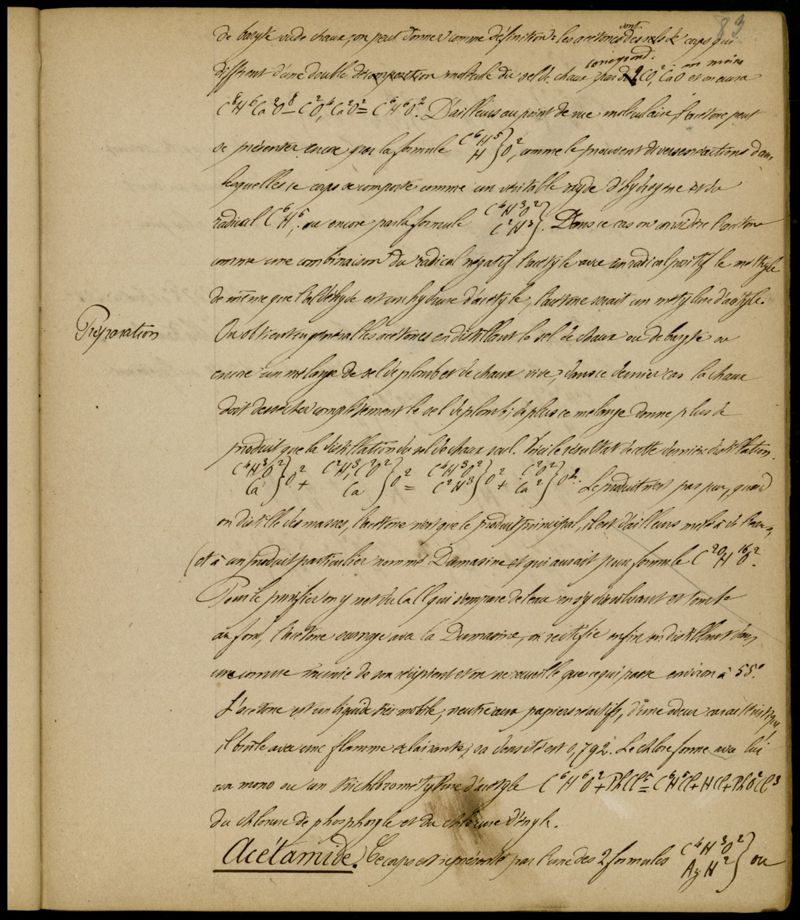 83
de baryte ou de chaux, on peut donner comme définition: les acétones sont des corps qui
diffèrent d'une double molécule du sel de chaux correspond. par 2CO², CaO en moins et on aura
C⁸H⁶Ca²O⁸ - C²O⁴, Ca²O² = C⁶H⁶O². D'ailleurs au point de vue moléculaire, l'acétone peut
se présenter encore par la formule C⁶H⁵ H } O², comme le prouvent diverses réactions dans
lesquelles ce corps se comporte comme un véritable oxyde d'hydrogène et du
radical C⁶H⁵, ou encore par la formule C⁴H³O² C²H³ }. Dans ce cas on considère l'acétone
comme une combinaison du radical négatif l'acétyle avec un radical positif le méthyle
de même que l'aldéhyde est un hydrure d'acétyle, l'acétone serait un métylure d'acétyle.
Préparation
On obtient en général les acétones en distillant le sel de chaux ou de baryte ou
encore un mélange de sel de plomb et de chaux vive, dans ce dernier cas la chaux
doit dessécher complètement le sel de plomb; de plus ce mélange donne plus de
produit que la distillation du sel de chaux seul. Voici le résultat de cette dernière distillation.
C⁴H³O² Ca } O² + C²H³, C²O² Ca } O² = C⁴H³O² C²H³ } O² + C²O² Ca² } O². Le produit n'est pas pur, quand
on distille des masses, l'acétone n'est que le produit principal, il est d'ailleurs mêlé à de l'eau,
(et à un produit particulier nommé Dumasine et qui aurait pour formule C²⁰H¹⁶O².
Pour le purifier on y met du CaCl qui s'empare de l'eau en s'y dissolvant et tombe
au fond, l'acétone surnage avec la Dumasine, on rectifie enfin en distillant dans
une cornue munie de son récipient et on ne recueille que ce qui passe environ à 55°.
L'acétone est un liquide très mobile, neutre aux papiers réactifs, d'une odeur caractéristique,
il brûle avec une flamme éclairante; sa densité est 0,792. Le chlore forme avec lui
un mono ou un trichlorométylure d'acétyle C⁶H⁶O² + PhCl⁵ = C⁶H⁵Cl + HCl + PhO²Cl³
du chlorure de phosphoryle et du chlorure d'
Acétamide. Ce corps est représenté par l'une des 2 formules C⁴H³O² AzH² } ou